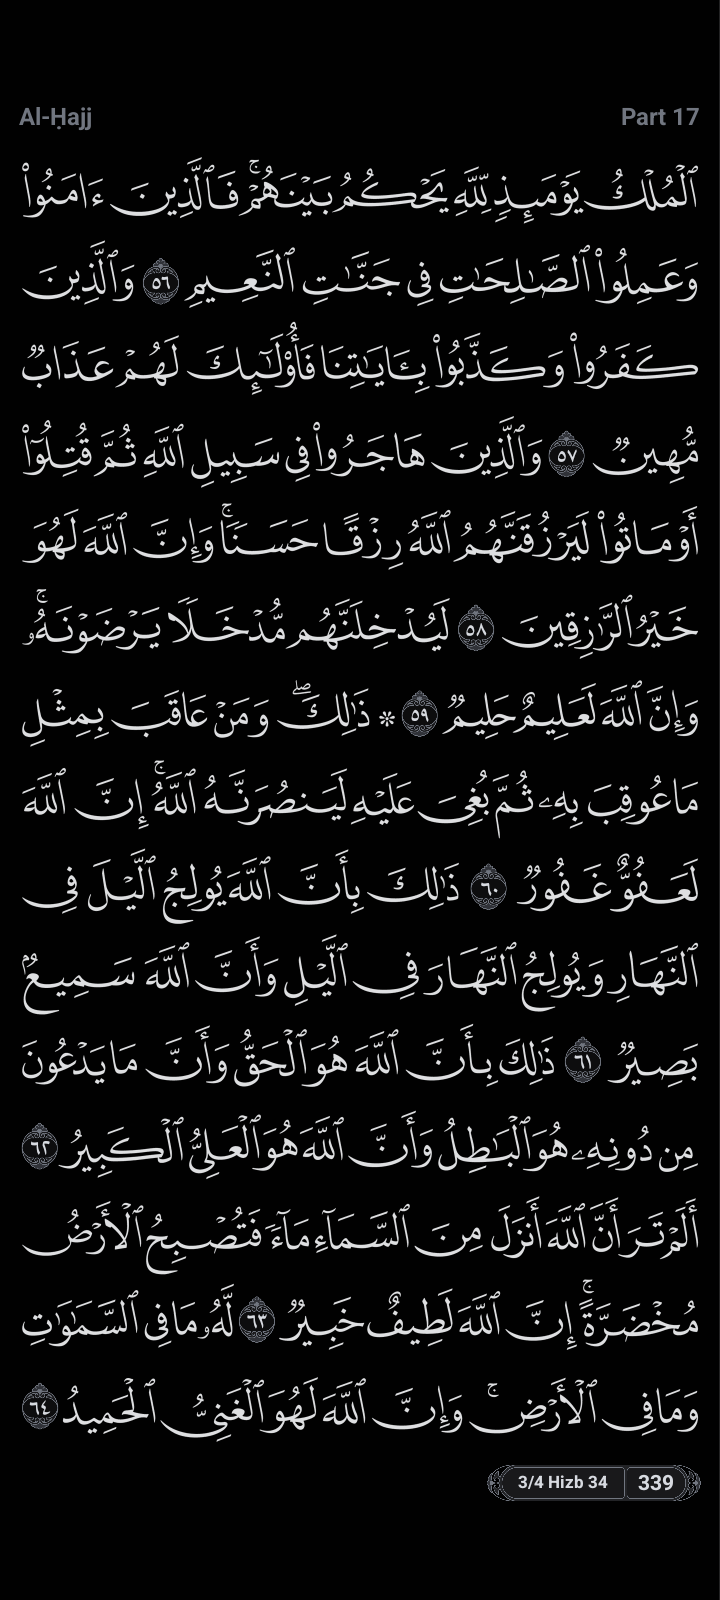 Al-Ḥajj
Part 17
ٱلۡمُلۡكُ يَوۡمَئِذٖ لِّلَّهِ يَحۡكُمُ بَيۡنَهُمۡۚ فَٱلَّذِينَ ءَامَنُواْ
وَعَمِلُواْ ٱلصَّٰلِحَٰتِ فِي جَنَّٰتِ ٱلنَّعِيمِ ٥٦ وَٱلَّذِينَ
كَفَرُواْ وَكَذَّبُواْ بِـَٔايَٰتِنَا فَأُوْلَٰٓئِكَ لَهُمۡ عَذَابٞ
مُّهِينٞ ٥٧ وَٱلَّذِينَ هَاجَرُواْ فِي سَبِيلِ ٱللَّهِ ثُمَّ قُتِلُوٓاْ
أَوۡ مَاتُواْ لَيَرۡزُقَنَّهُمُ ٱللَّهُ رِزۡقًا حَسَنٗاۚ وَإِنَّ ٱللَّهَ لَهُوَ
خَيۡرُ ٱلرَّٰزِقِينَ ٥٨ لَيُدۡخِلَنَّهُم مُّدۡخَلٗا يَرۡضَوۡنَهُۥۚ
وَإِنَّ ٱللَّهَ لَعَلِيمٌ حَلِيمٞ ٥٩ ۞ ذَٰلِكَۖ وَمَنۡ عَاقَبَ بِمِثۡلِ
مَا عُوقِبَ بِهِۦ ثُمَّ بُغِيَ عَلَيۡهِ لَيَنصُرَنَّهُ ٱللَّهُۚ إِنَّ ٱللَّهَ
لَعَفُوٌّ غَفُورٞ ٦٠ ذَٰلِكَ بِأَنَّ ٱللَّهَ يُولِجُ ٱلَّيۡلَ فِي
ٱلنَّهَارِ وَيُولِجُ ٱلنَّهَارَ فِي ٱلَّيۡلِ وَأَنَّ ٱللَّهَ سَمِيعُۢ
بَصِيرٞ ٦١ ذَٰلِكَ بِأَنَّ ٱللَّهَ هُوَ ٱلۡحَقُّ وَأَنَّ مَا يَدۡعُونَ
مِن دُونِهِۦ هُوَ ٱلۡبَٰطِلُ وَأَنَّ ٱللَّهَ هُوَ ٱلۡعَلِيُّ ٱلۡكَبِيرُ ٦٢
أَلَمۡ تَرَ أَنَّ ٱللَّهَ أَنزَلَ مِنَ ٱلسَّمَآءِ مَآءٗ فَتُصۡبِحُ ٱلۡأَرۡضُ
مُخۡضَرَّةًۚ إِنَّ ٱللَّهَ لَطِيفٌ خَبِيرٞ ٦٣ لَّهُۥ مَا فِي ٱلسَّمَٰوَٰتِ
وَمَا فِي ٱلۡأَرۡضِۚ وَإِنَّ ٱللَّهَ لَهُوَ ٱلۡغَنِيُّ ٱلۡحَمِيدُ ٦٤
3/4 Hizb 34 339